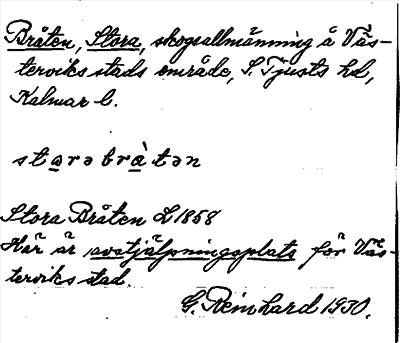 Bråten, Stora, skogsallmänning å Väs-
terviks stads område, S. Tjusts hd,
Kalmar l.
starəbrɑ̀tən
Stora Bråten L 1858
Här är avstjälpningsplats för Väs-
terviks stad.
G. Reinhard 1930.